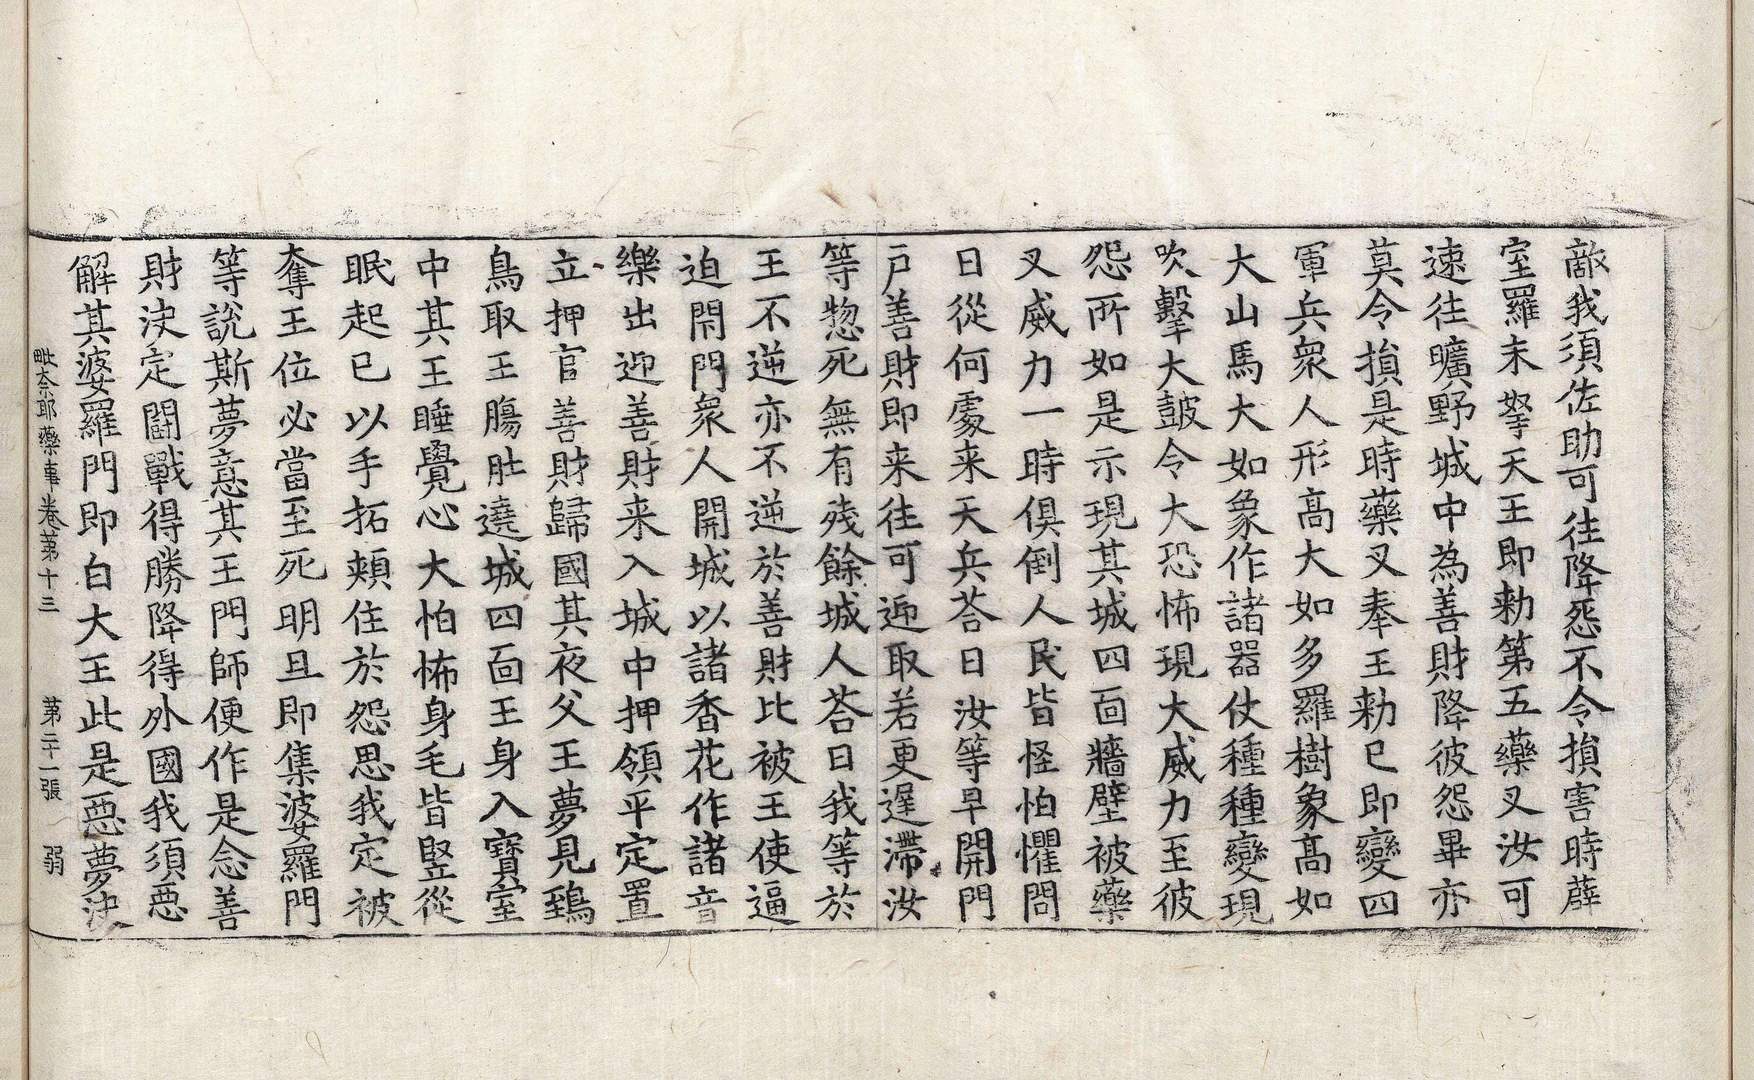 敵我須佐助可往降怨不令損害時薜
室羅末拏天王即勅第五藥叉汝可
速往曠野城中為善財降彼怨畢亦
莫令損是時藥叉奉王勅已即變四
軍兵衆人形高大如多羅樹象高如
大山馬大如象作諸器仗種種變現
吹擊大鼓令大恐怖現大威力至彼
怨所如是示現其城四面牆壁被藥
叉威力一時俱倒人民皆怪怕懼問
曰從何處来天兵荅曰汝等早開門
戶善財即来往可迎取若更遲滯汝
等惣死無有殘餘城人荅曰我等於
王不逆亦不逆於善財比被王使逼
迫閇門衆人開城以諸香花作諸音
樂出迎善財来入城中押領平定置
立押官善財歸國其夜父王夢見鵄
鳥取王膓肚遶城四面王身入寶室
中其王睡覺心大怕怖身毛皆竪從
眠起已以手拓頰住於怨思我定被
奪王位必當至死明旦即集婆羅門
等說斯夢意其王門師便作是念善
財決定鬪戰得勝降得外國我須惡
解其婆羅門即白大王此是惡夢決
毗奈耶藥事卷第十三　第二十一張　弱